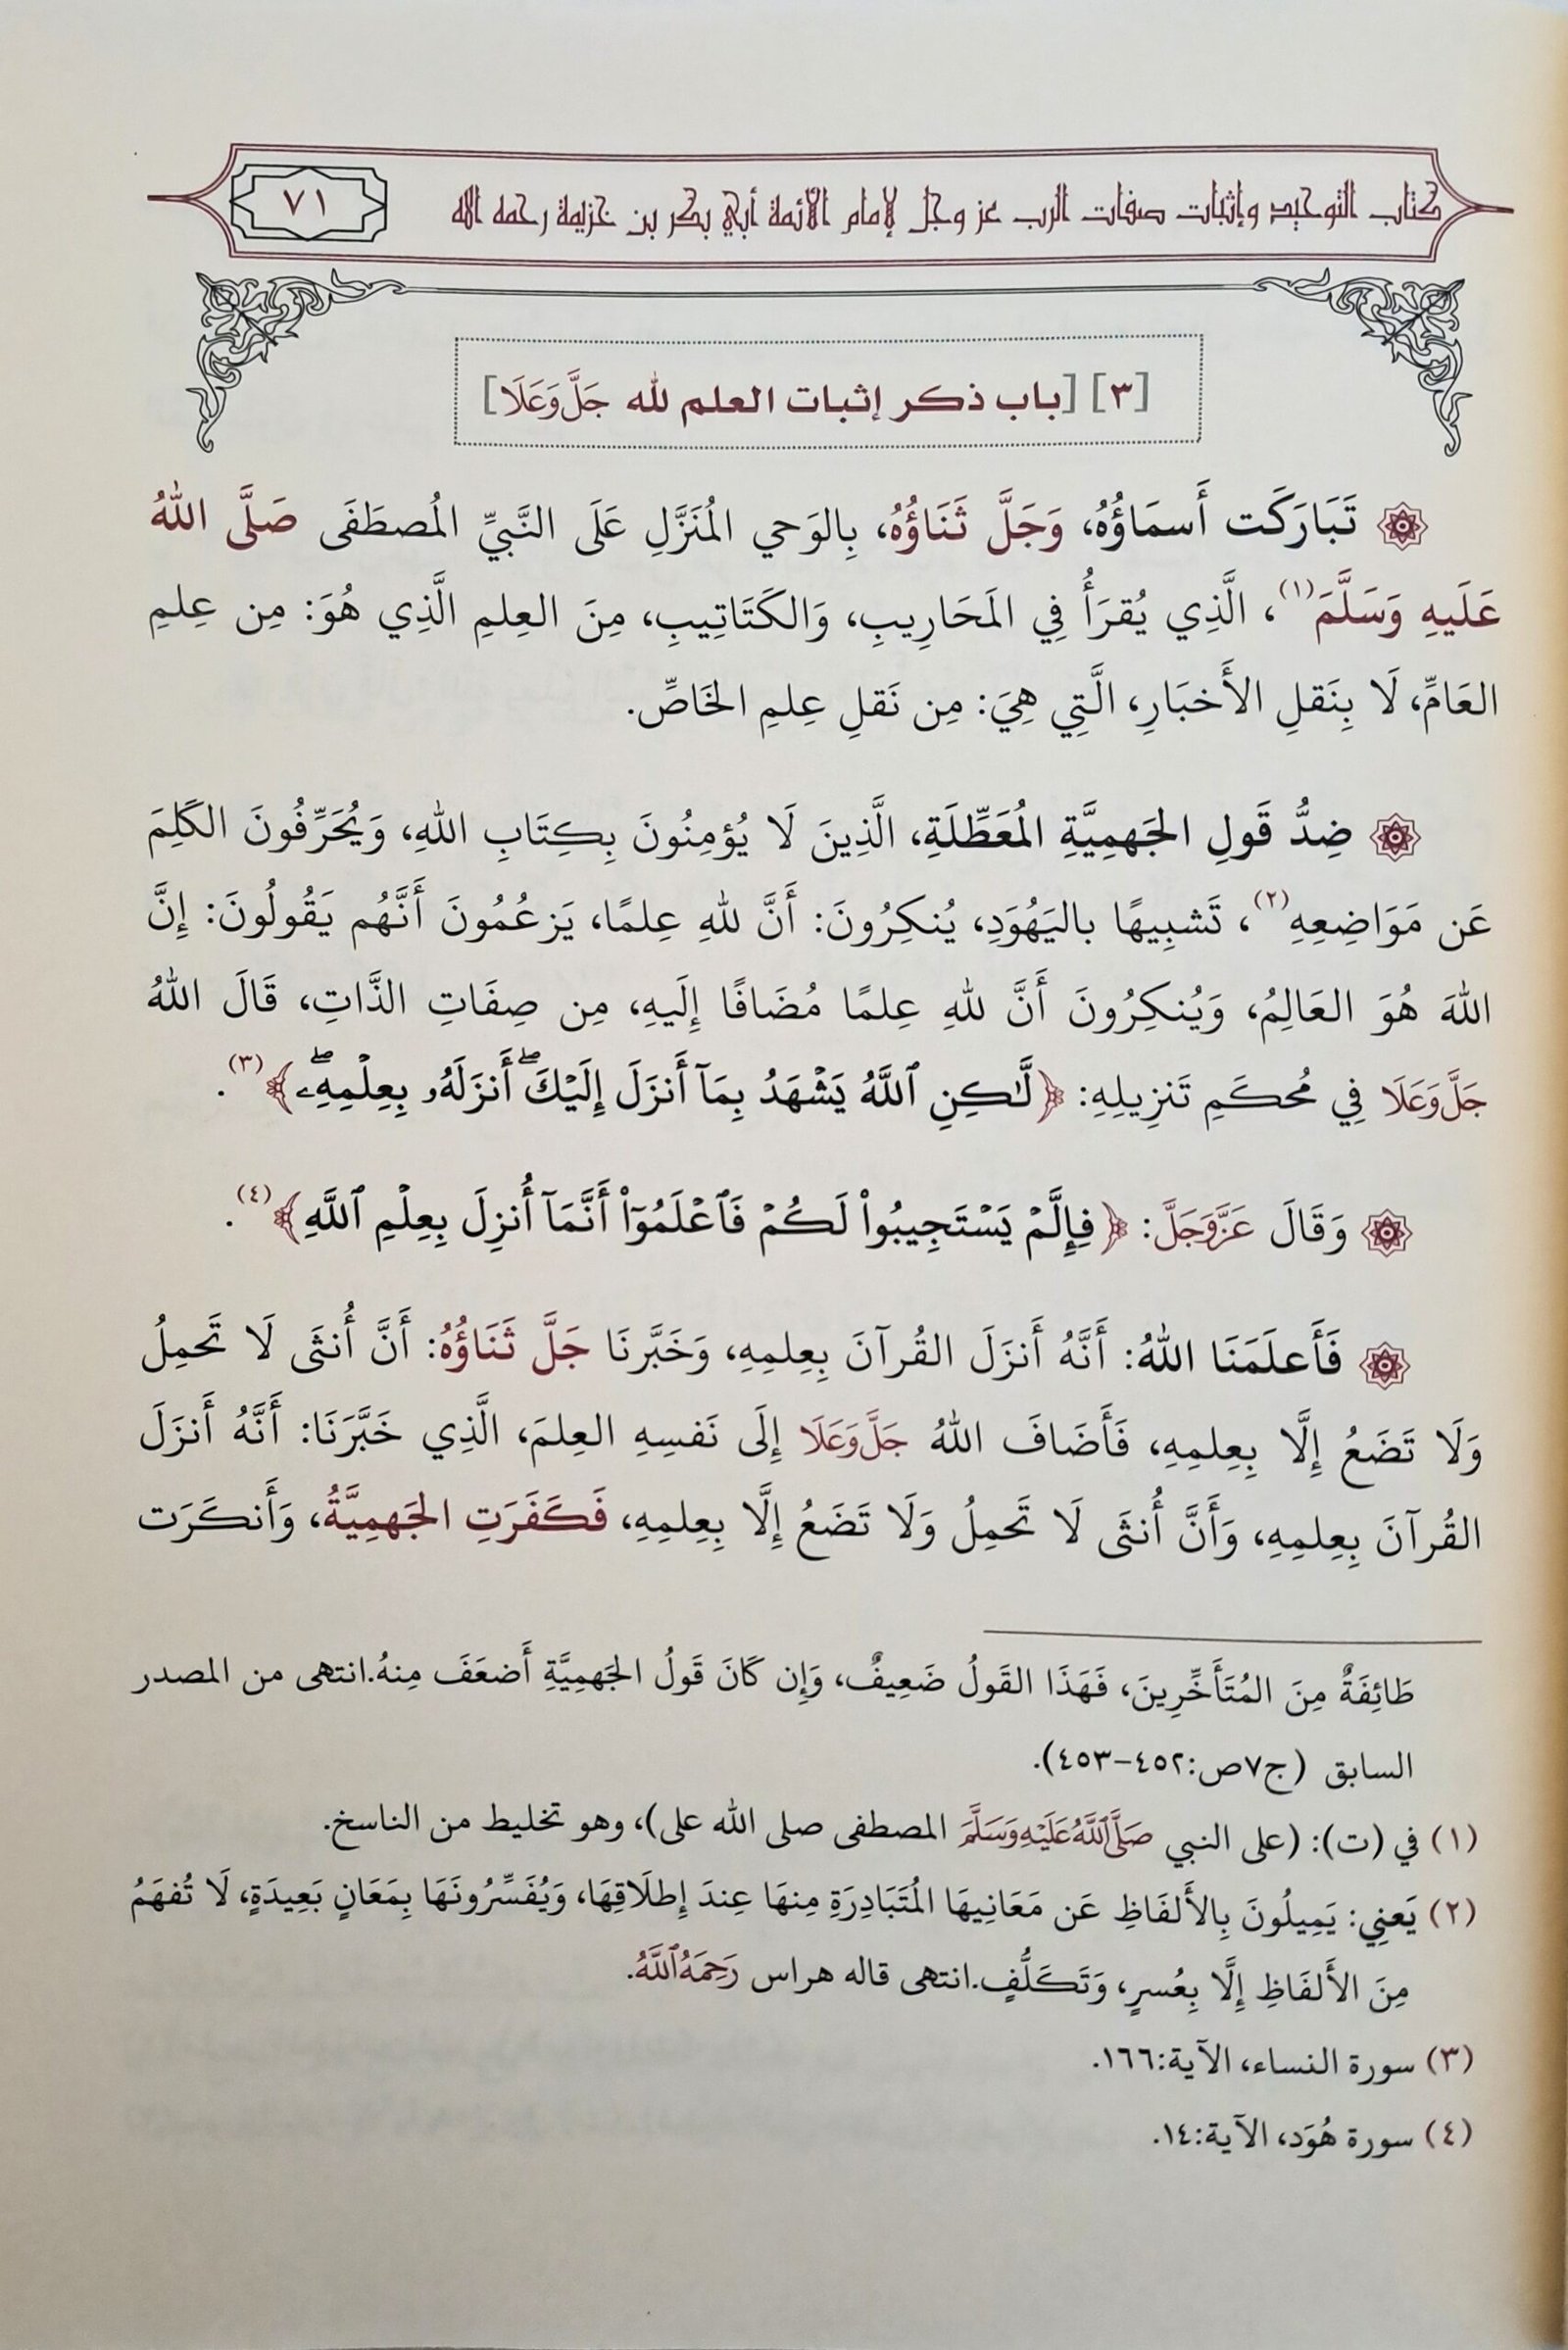 كتاب التوحيد وإثبات صفات الرب عز وجل لإمام الأئمة أبي بكر بن خزيمة رحمه الله
٧١
[٣] [باب ذكر إثبات العلم لله جَلَّ وَعَلَا]
تَبَارَكَت أَسمَاؤُهُ، وَجَلَّ ثَنَاؤُهُ، بِالوَحيِ المُنَزَّلِ عَلَى النَّبِيِّ المُصطَفَى صَلَّى اللهُ
عَلَيهِ وَسَلَّمَ(١)، الَّذِي يُقرَأُ فِي المَحَارِيبِ، وَالكَتَاتِيبِ، مِنَ العِلمِ الَّذِي هُوَ: مِن عِلمِ
العَامِّ، لَا بِنَقلِ الأَخبَارِ، الَّتِي هِيَ: مِن نَقلِ عِلمِ الخَاصِّ.
ضِدُّ قَولِ الجَهمِيَّةِ المُعَطِّلَةِ، الَّذِينَ لَا يُؤمِنُونَ بِكِتَابِ اللهِ، وَيُحَرِّفُونَ الكَلِمَ
عَن مَوَاضِعِهِ(٢)، تَشبِيهًا باليَهُودِ، يُنكِرُونَ: أَنَّ للهِ عِلمًا، يَزعُمُونَ أَنَّهُم يَقُولُونَ: إِنَّ
اللهَ هُوَ العَالِمُ، وَيُنكِرُونَ أَنَّ للهِ عِلمًا مُضَافًا إِلَيهِ، مِن صِفَاتِ الذَّاتِ، قَالَ اللهُ
جَلَّ وَعَلَا فِي مُحكَمِ تَنزِيلِهِ: ﴿لَّٰكِنِ ٱللَّهُ يَشْهَدُ بِمَآ أَنزَلَ إِلَيْكَۖ أَنزَلَهُۥ بِعِلْمِهِۦۖ﴾(٣).
وَقَالَ عَزَّ وَجَلَّ: ﴿فَإِلَّمْ يَسْتَجِيبُوا۟ لَكُمْ فَٱعْلَمُوٓا۟ أَنَّمَآ أُنزِلَ بِعِلْمِ ٱللَّهِ﴾(٤).
فَأَعلَمَنَا اللهُ: أَنَّهُ أَنزَلَ القُرآنَ بِعِلمِهِ، وَخَبَّرنَا جَلَّ ثَنَاؤُهُ: أَنَّ أُنثَى لَا تَحمِلُ
وَلَا تَضَعُ إِلَّا بِعِلمِهِ، فَأَضَافَ اللهُ جَلَّ وَعَلَا إِلَى نَفسِهِ العِلمَ، الَّذِي خَبَّرَنَا: أَنَّهُ أَنزَلَ
القُرآنَ بِعِلمِهِ، وَأَنَّ أُنثَى لَا تَحمِلُ وَلَا تَضَعُ إِلَّا بِعِلمِهِ، فَكَفَرَتِ الجَهمِيَّةُ، وَأَنكَرَت
طَائِفَةٌ مِنَ المُتَأَخِّرِينَ، فَهَذَا القَولُ ضَعِيفٌ، وَإِن كَانَ قَولُ الجَهمِيَّةِ أَضعَفَ مِنهُ.انتهى من المصدر
السابق (ج٧ص:٤٥٢-٤٥٣).
(١) في (ت): (على النبي صَلَّى ٱللَّهُ عَلَيْهِ وَسَلَّمَ المصطفى صلى الله على)، وهو تخليط من الناسخ.
(٢) يَعنِي: يَمِيلُونَ بِالأَلفَاظِ عَن مَعَانِيهَا المُتَبَادِرَةِ مِنهَا عِندَ إِطلَاقِهَا، وَيُفَسِّرُونَهَا بِمَعَانٍ بَعِيدَةٍ، لَا تُفهَمُ
مِنَ الأَلفَاظِ إِلَّا بِعُسرٍ، وَتَكَلُّفٍ.انتهى قاله هراس رَحِمَهُ ٱللَّهُ.
(٣) سورة النساء، الآية:١٦٦.
(٤) سورة هُوَد، الآية:١٤.